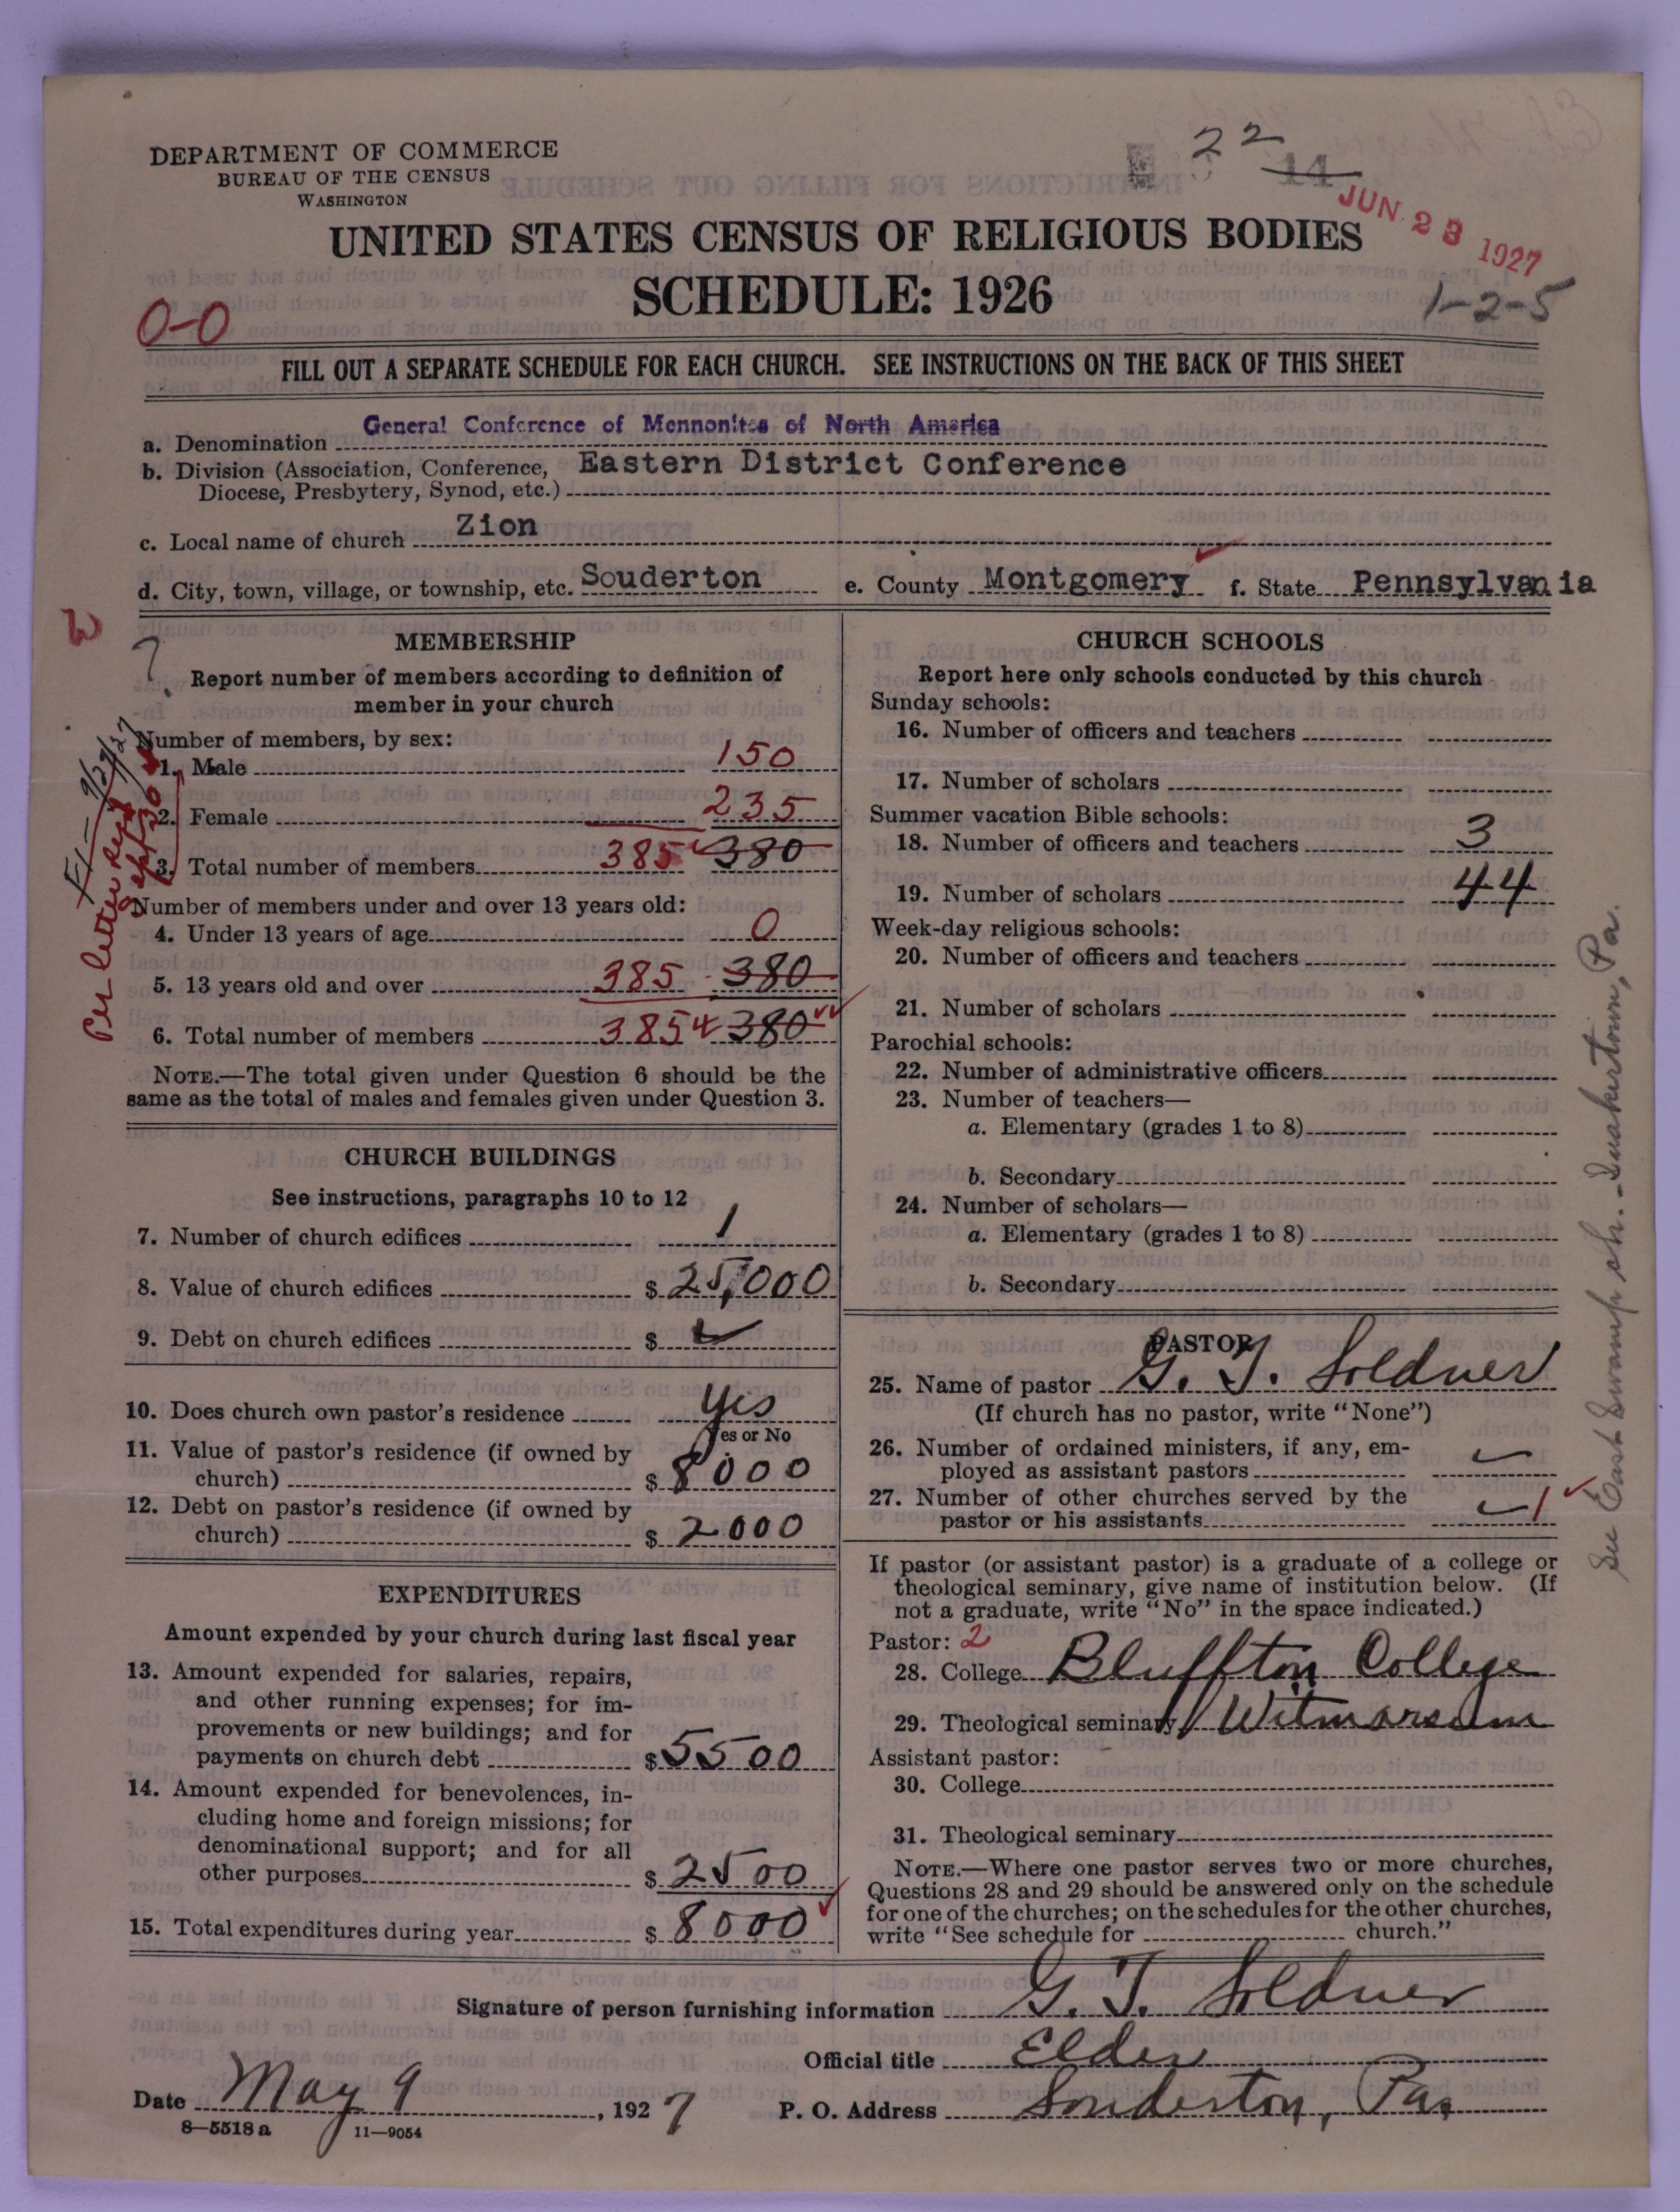 DEPARTMENT OF COMMERCE
BUREAU OF THE CENSUS
WASHINGTON
22
14
JUN 23 1927
UNITED STATES CENSUS OF RELIGIOUS BODIES
SCHEDULE: 1926
1-2-5
0-0
FILL OUT A SEPARATE SCHEDULE FOR EACH CHURCH. SEE INSTRUCTIONS ON THE BACK OF THIS SHEET
a. Denomination General Conference of Mennonites of North America
b. Division (Association, Conference, Eastern District Conference
Diocese, Presbytery, Synod, etc.)
c. Local name of church Zion
d. City, town, village, or township, etc. Souderton e. County Montgomery f. State Pennsylvania
W
?
MEMBERSHIP
Report number of members according to definition of
member in your church
Number of members, by sex:
1. Male 150
2. Female 235
3. Total number of members 385 380
Number of members under and over 13 years old:
4. Under 13 years of age 0
5. 13 years old and over 385 380
6. Total number of members 385 380
NOTE.—The total given under Question 6 should be the
same as the total of males and females given under Question 3.
Per letter
CHURCH BUILDINGS
See instructions, paragraphs 10 to 12
7. Number of church edifices 1
8. Value of church edifices $ 25,000
9. Debt on church edifices $
10. Does church own pastor's residence Yes
Yes or No
11. Value of pastor's residence (if owned by
church) $ 8000
12. Debt on pastor's residence (if owned by
church) $ 2000
EXPENDITURES
Amount expended by your church during last fiscal year
13. Amount expended for salaries, repairs,
and other running expenses; for im-
provements or new buildings; and for
payments on church debt $ 5500
14. Amount expended for benevolences, in-
cluding home and foreign missions; for
denominational support; and for all
other purposes $ 2500
15. Total expenditures during year $ 8000
CHURCH SCHOOLS
Report here only schools conducted by this church
Sunday schools:
16. Number of officers and teachers
17. Number of scholars
Summer vacation Bible schools:
18. Number of officers and teachers 3
19. Number of scholars 44
Week-day religious schools:
20. Number of officers and teachers
21. Number of scholars
Parochial schools:
22. Number of administrative officers
23. Number of teachers—
a. Elementary (grades 1 to 8)
b. Secondary
24. Number of scholars—
a. Elementary (grades 1 to 8)
b. Secondary
PASTOR
25. Name of pastor G. T. Soldner
(If church has no pastor, write "None")
26. Number of ordained ministers, if any, em-
ployed as assistant pastors
27. Number of other churches served by the
pastor or his assistants 1
If pastor (or assistant pastor) is a graduate of a college or
theological seminary, give name of institution below. (If
not a graduate, write "No" in the space indicated.)
Pastor: 2
28. College Bluffton College
29. Theological seminary Witmarsum
Assistant pastor:
30. College
31. Theological seminary
NOTE.—Where one pastor serves two or more churches,
Questions 28 and 29 should be answered only on the schedule
for one of the churches; on the schedules for the other churches,
write "See schedule for church."
See East Swamp ch. - Quakertown, Pa.
Signature of person furnishing information G. T. Soldner
Official title Elder
Date May 9, 1927 P. O. Address Souderton, Pa.
8—5518 a 11—9054